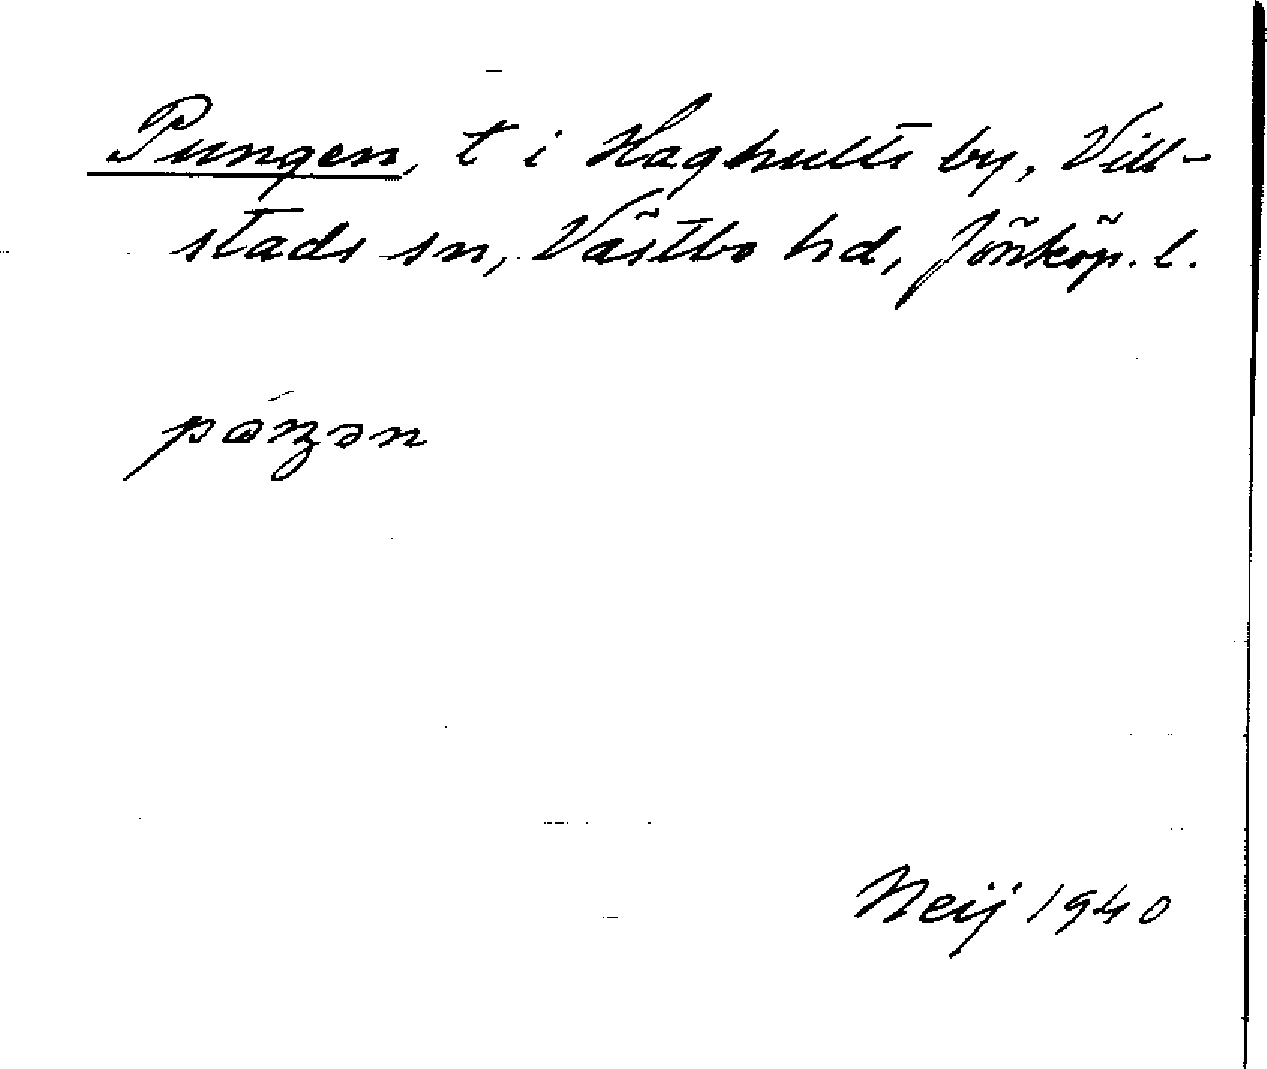 Pungen, t i Haghults by, Vill-
stads sn, Västbo hd, Jönköp. l.
Neij 1940